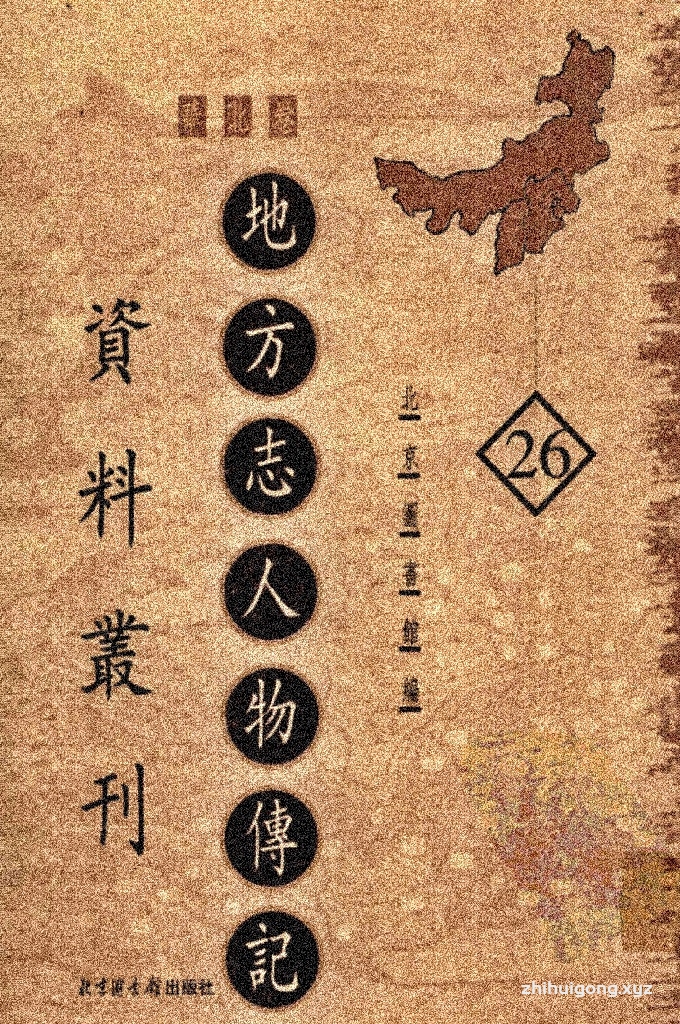 華北卷
26
北京圖書館編
地方志人物傳記
資料叢刊
北京图书馆出版社
zhihuigong.xyz